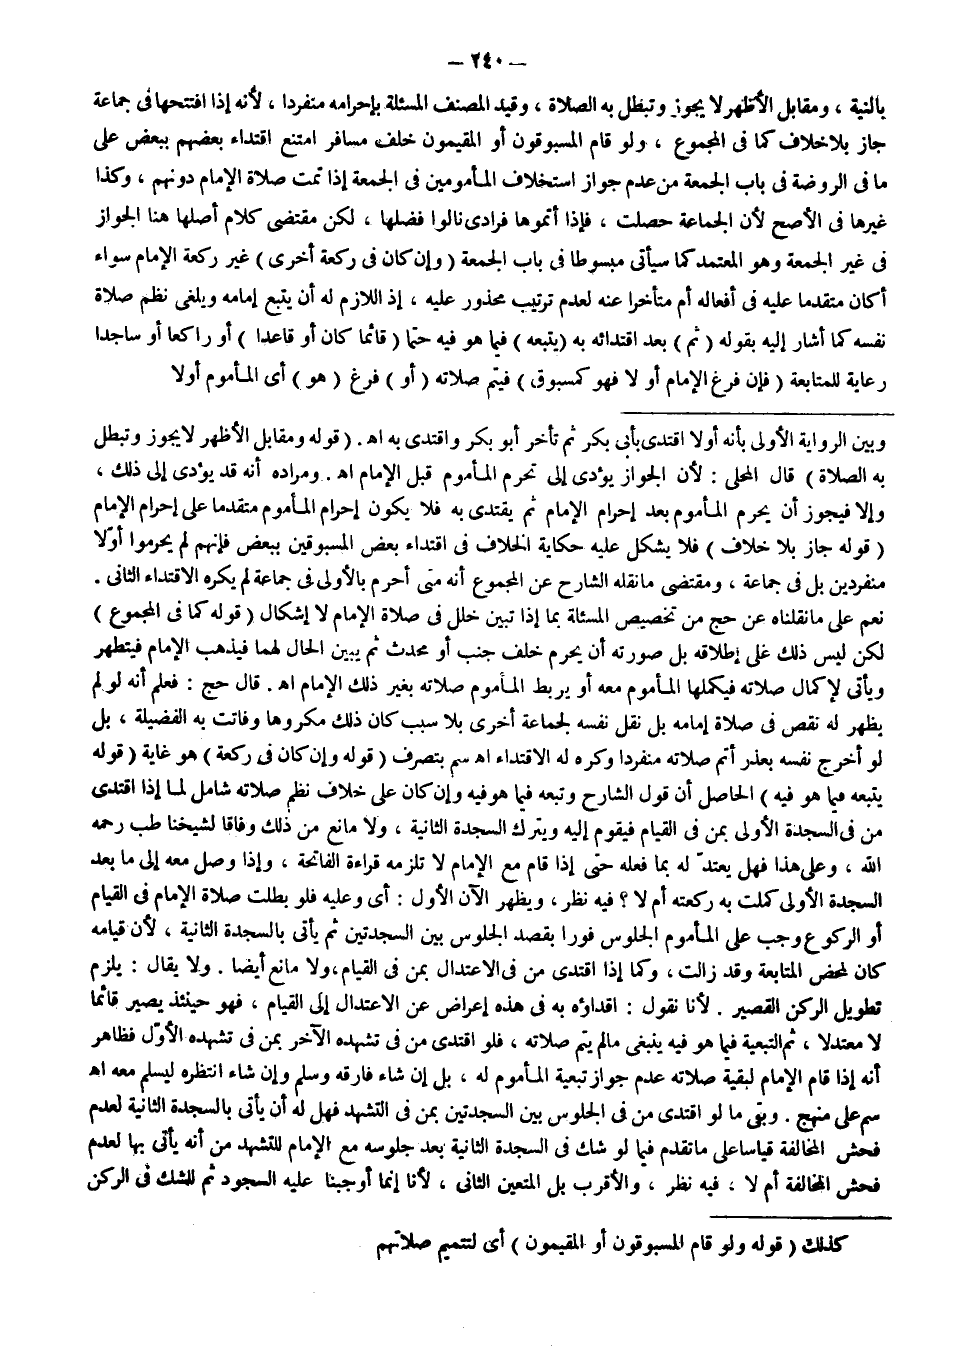 — ٢٤٠ —
بالنية ، ومقابل الأظهر لا يجوز وتبطل به الصلاة ، وقيد المصنف المسئلة بإحرامه منفردا ، لأنه إذا افتتحها فى جماعة
جاز بلا خلاف كما فى المجموع ، ولو قام المسبوقون أو المقيمون خلف مسافر امتنع اقتداء بعضهم ببعض على
ما فى الروضة فى باب الجمعة من عدم جواز استخلاف المأمومين فى الجمعة إذا تمت صلاة الإمام دونهم ، وكذا
غيرها فى الأصح لأن الجماعة حصلت ، فإذا أتموها فرادى نالوا فضلها ، لكن مقتضى كلام أصلها هنا الجواز
فى غير الجمعة وهو المعتمد كما سيأتى مبسوطا فى باب الجمعة ( وإن كان فى ركعة أخرى ) غير ركعة الإمام سواء
أكان متقدما عليه فى أفعاله أم متأخرا عنه لعدم ترتيب محذور عليه ، إذ اللازم له أن يتبع إمامه ويلغى نظم صلاة
نفسه كما أشار إليه بقوله ( ثم ) بعد اقتدائه به ( يتبعه ) فيما هو فيه حتما ( قائما كان أو قاعدا ) أو راكعا أو ساجدا
رعاية للمتابعة ( فإن فرغ الإمام أو لا فهو كمسبوق ) فيتم صلاته ( أو ) فرغ ( هو ) أى المأموم أولا
وبين الرواية الأولى بأنه أولا اقتدى بأبى بكر ثم تأخر أبو بكر واقتدى به اه . ( قوله ومقابل الأظهر لايجوز وتبطل
به الصلاة ) قال المحلى : لأن الجواز يؤدى إلى تحرم المأموم قبل الإمام اه . ومراده أنه قد يؤدى إلى ذلك ،
وإلا فيجوز أن يحرم المأموم بعد إحرام الإمام ثم يقتدى به فلا يكون إحرام المأموم متقدما على إحرام الإمام
( قوله جاز بلا خلاف ) فلا يشكل عليه حكاية الخلاف فى اقتداء بعض المسبوقين ببعض فإنهم لم يحرموا أولا
منفردين بل فى جماعة ، ومقتضى مانقله الشارح عن المجموع أنه متى أحرم بالأولى فى جماعة لم يكره الاقتداء الثانى .
نعم على مانقلناه عن حج من تخصيص المسئلة بما إذا تبين خلل فى صلاة الإمام لا إشكال ( قوله كما فى المجموع )
لكن ليس ذلك على إطلاقه بل صورته أن يحرم خلف جنب أو محدث ثم يبين الحال لهما فيذهب الإمام فيتطهر
ويأتى لإكمال صلاته فيكملها المأموم معه أو يربط المأموم صلاته بغير ذلك الإمام اه . قال حج : فعلم أنه لو لم
يظهر له نقص فى صلاة إمامه بل نقل نفسه لجماعة أخرى بلا سبب كان ذلك مكروها وفاتت به الفضيلة ، بل
لو أخرج نفسه بعذر أتم صلاته منفردا وكره له الاقتداء اه سم بتصرف ( قوله وإن كان فى ركعة ) هو غاية ( قوله
يتبعه فيما هو فيه ) الحاصل أن قول الشارح وتبعه فيما هو فيه وإن كان على خلاف نظم صلاته شامل لما إذا اقتدى
من فى السجدة الأولى بمن فى القيام فيقوم إليه ويترك السجدة الثانية ، ولا مانع من ذلك وفاقا لشيخنا طب رحمه
الله ، وعلى هذا فهل يعتدّ له بما فعله حتى إذا قام مع الإمام لا تلزمه قراءة الفاتحة ، وإذا وصل معه إلى ما بعد
السجدة الأولى كملت به ركعته أم لا ؟ فيه نظر ، ويظهر الآن الأول : أى وعليه فلو بطلت صلاة الإمام فى القيام
أو الركوع وجب على المأموم الجلوس فورا بقصد الجلوس بين السجدتين ثم يأتى بالسجدة الثانية ، لأن قيامه
كان لمحض المتابعة وقد زالت ، وكما إذا اقتدى من فى الاعتدال بمن فى القيام ، ولا مانع أيضا . ولا يقال : يلزم
تطويل الركن القصير . لأنا نقول : اقداؤه به فى هذه إعراض عن الاعتدال إلى القيام ، فهو حينئذ يصير قائما
لا معتدلا ، ثم التبعية فيما هو فيه ينبغى مالم يتم صلاته ، فلو اقتدى من فى تشهده الآخر بمن فى تشهده الأول فظاهر
أنه إذا قام الإمام لبقية صلاته عدم جواز تبعية المأموم له ، بل إن شاء فارقه وسلم وإن شاء انتظره ليسلم معه اه
سم على منهج . وبقى ما لو اقتدى من فى الجلوس بين السجدتين بمن فى التشهد فهل له أن يأتى بالسجدة الثانية لعدم
فحش المخالفة قياسا على ماتقدم فيما لو شك فى السجدة الثانية بعد جلوسه مع الإمام للتشهد من أنه يأتى بها لعدم
فحش المخالفة أم لا ، فيه نظر ، والأقرب بل المتعين الثانى ، لأنا إنما أوجبنا عليه السجود ثم للشك فى الركن
كذلك ( قوله ولو قام المسبوقون أو المقيمون ) أى لتتميم صلاتهم